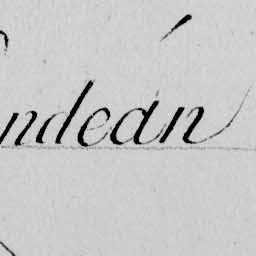 ndeán